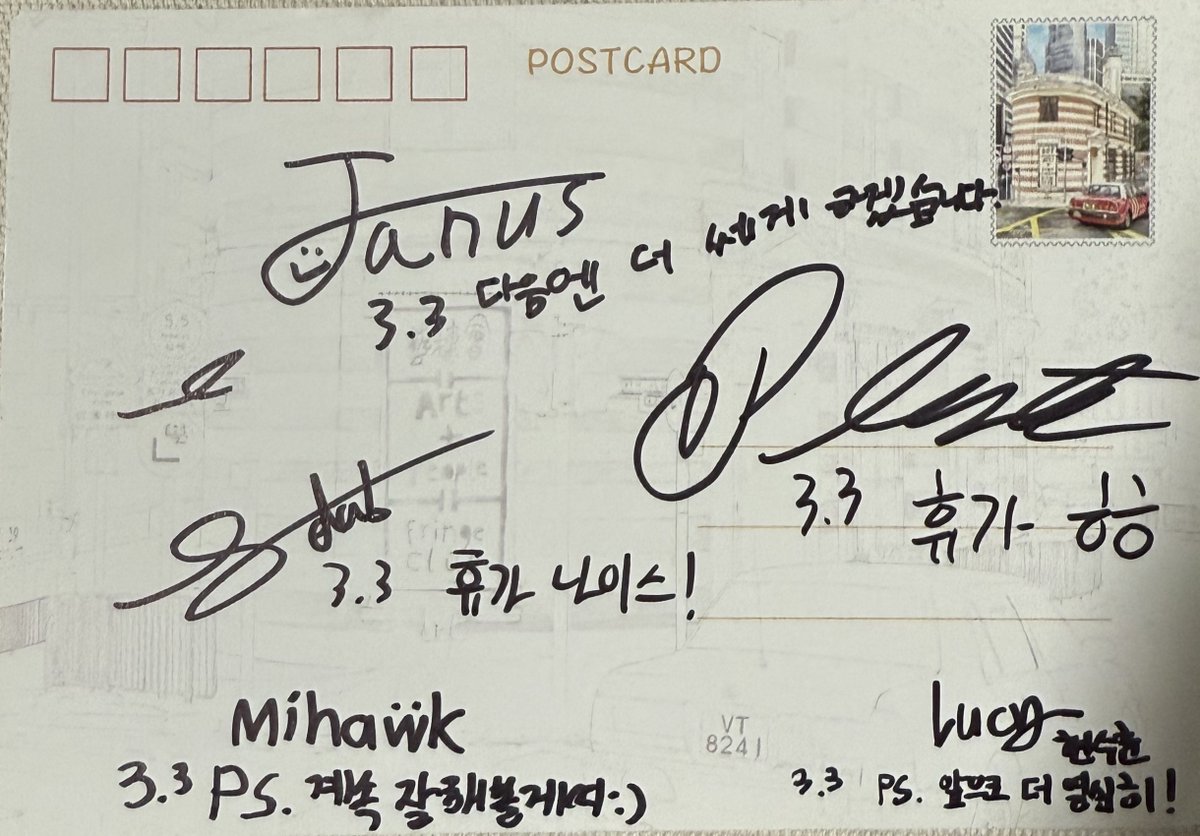 POSTCARD
Janus
3.3 다음엔 더 쎄게 하겠습니다.
3.3 휴가 항
3.3 휴가 나이스!
Mihawk
3.3 PS. 계속 잘해볼게여:)
Lucy
3.3 PS. 앞으로 더 열심히!
Art
+
People
Fringe
VT
8241